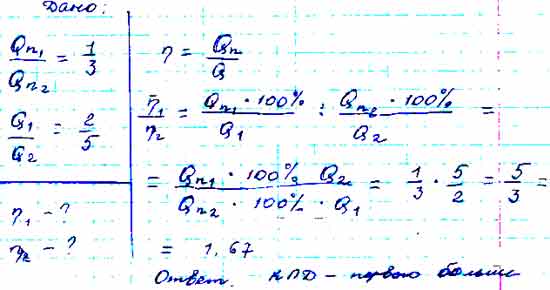 Дано:
Qп₁/Qп₂ = 1/3
Q₁/Q₂ = 2/5
η₁ - ?
η₂ - ?
η = Qп/Q
η₁/η₂ = Qп₁ · 100%/Q₁ : Qп₂ · 100%/Q₂ =
= Qп₁ · 100% Q₂/Qп₂ · 100% · Q₁ = 1/3 · 5/2 = 5/3 =
= 1,67
Ответ. КПД - первого больше